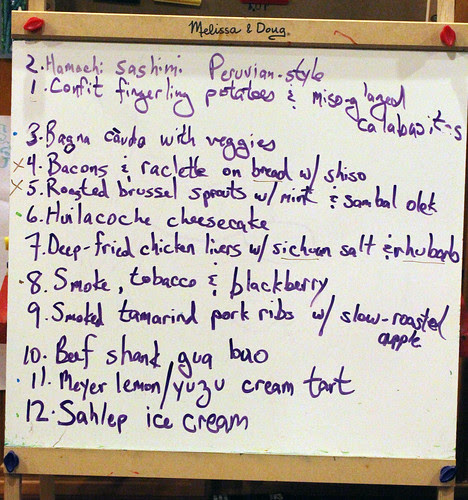 Melissa & Doug
2. Hamachi sashimi Peruvian-style
1. Confit fingerling potatoes & miso-glazed
calabasitas
3. Bagna càuda with veggies
x4. Bacons & raclette on bread w/ shiso
x5. Roasted brussel sprouts w/ mint & sambal olek
6. Huilacoche cheesecake
7. Deep-fried chicken livers w/ sichuan salt & rhubarb
8. Smoke, tobacco & blackberry
9. Smoked tamarind pork ribs w/ slow-roasted
apple
10. Beef shank gua bao
11. Meyer lemon/yuzu cream tart
12. Sahlep ice cream